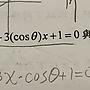 -3(cosθ)x+1=0 與
3x-cosθ+1=0